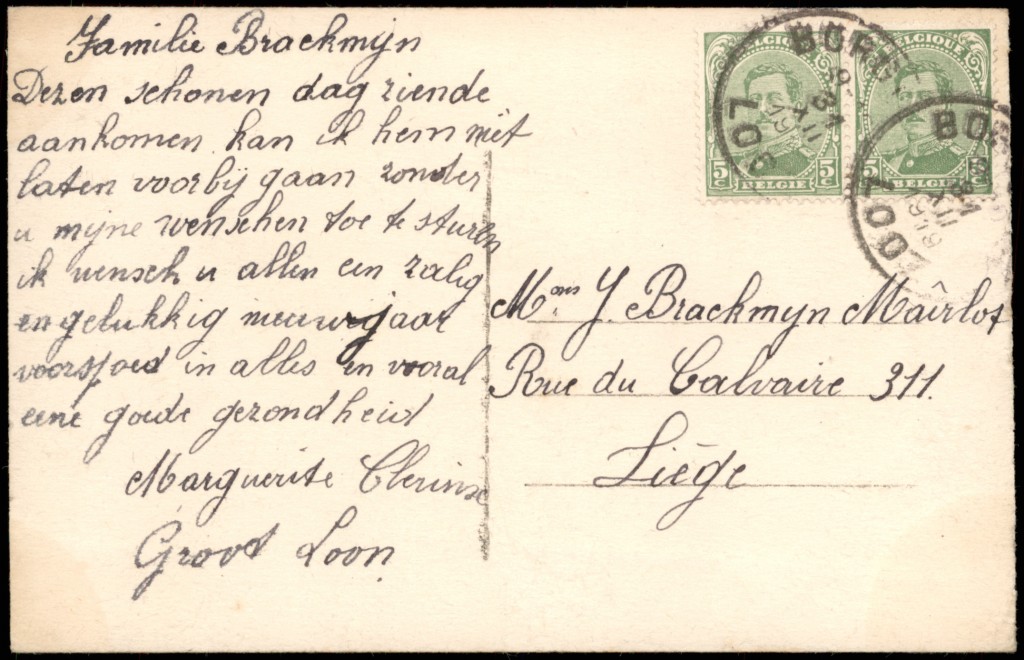 Familie Brackmyn
Dezen schonen dag ziende
aankomen kan ik hem niet
laten voorbij gaan zonder
u mijne wenschen toe te sturen
ik wensch u allen een zalig
en gelukkig nieuwgjaar
voorspoed in alles en vooral
eene goede gezondheid
Marguerite Clerinx
Groot Loon
BELGIQUE BELGIQUE
5c BELGIE 5c
5c BELGIE 5c
BORG
LOO
BOR
LOO
Mons J. Brackmyn Mairlot
Rue du Calvaire 311.
Liége